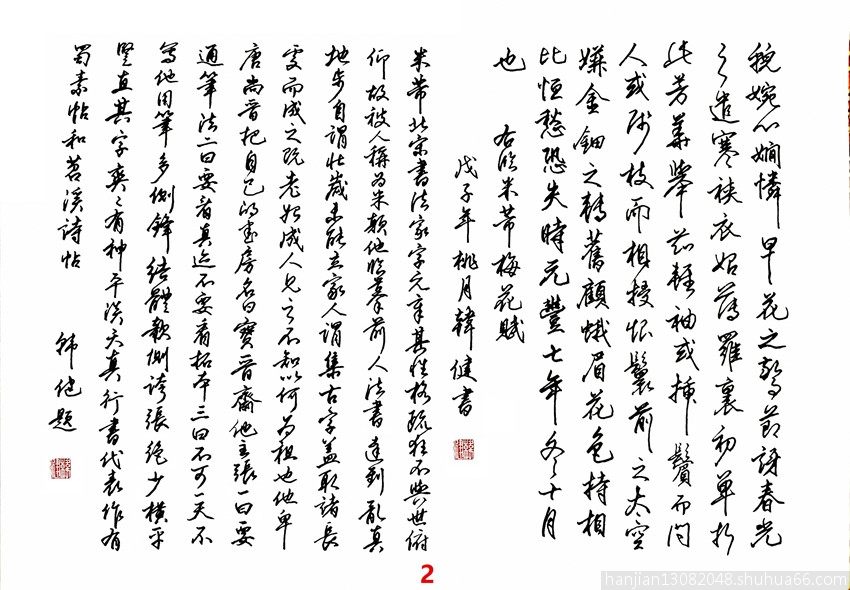 貌婉心嫺憐早花之驚節訝春光
之遣寒裌衣始薄羅裏初單折
此芳華舉茲輕袖或插鬢而問
人或殘枝而相授恨鬟前之太空
嫌金鈿之轉舊顧蛾眉花色持相
比恒愁恐失時元豐七年冬十月
也
右臨米芾梅花賦
戊子年桃月韓健書
米芾北宋書法家字元章其性格疏狂不與世俯
仰故被人稱為米顛他臨摹前人法書達到亂真
地步自謂壯歲未能立家人謂集古字蓋取諸長
處而成之既老始成人見之不知以何為祖也他卑
唐尚晉把自己的書房名曰寶晉齋他主張一曰要
通筆法二曰要看真迹不要看拓本三曰不可一天不
寫他用筆多側鋒結體欹側誇張絕少橫平
豎直其字奕々有神平淡天真行書代表作有
蜀素帖和苕溪詩帖
韩健題
2
hanjian13082048.shuhua66.com